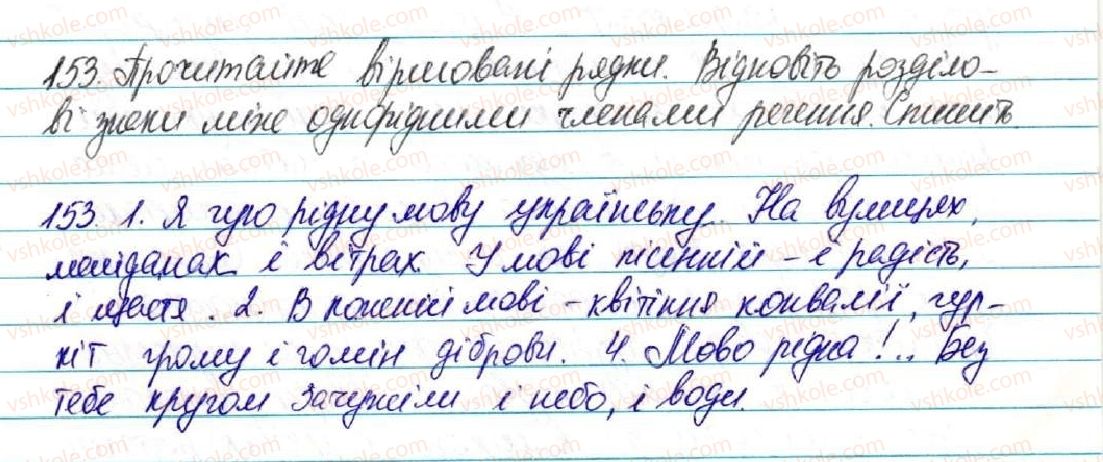 153. Прочитайте віршовані рядки. Відновіть розділо-
ві знаки між однорідними членами речення. Спишіть.
153. 1. Я чую рідну мову українську. На вулицях,
майданах і вітрах. У мові пісенній - і радість,
і щастя. 2. В кожній мові - квітіння конвалії, гур-
кіт грому і гомін діброви. 4. Мово рідна!.. Без
тебе кругом зачужіли і небо, і води.